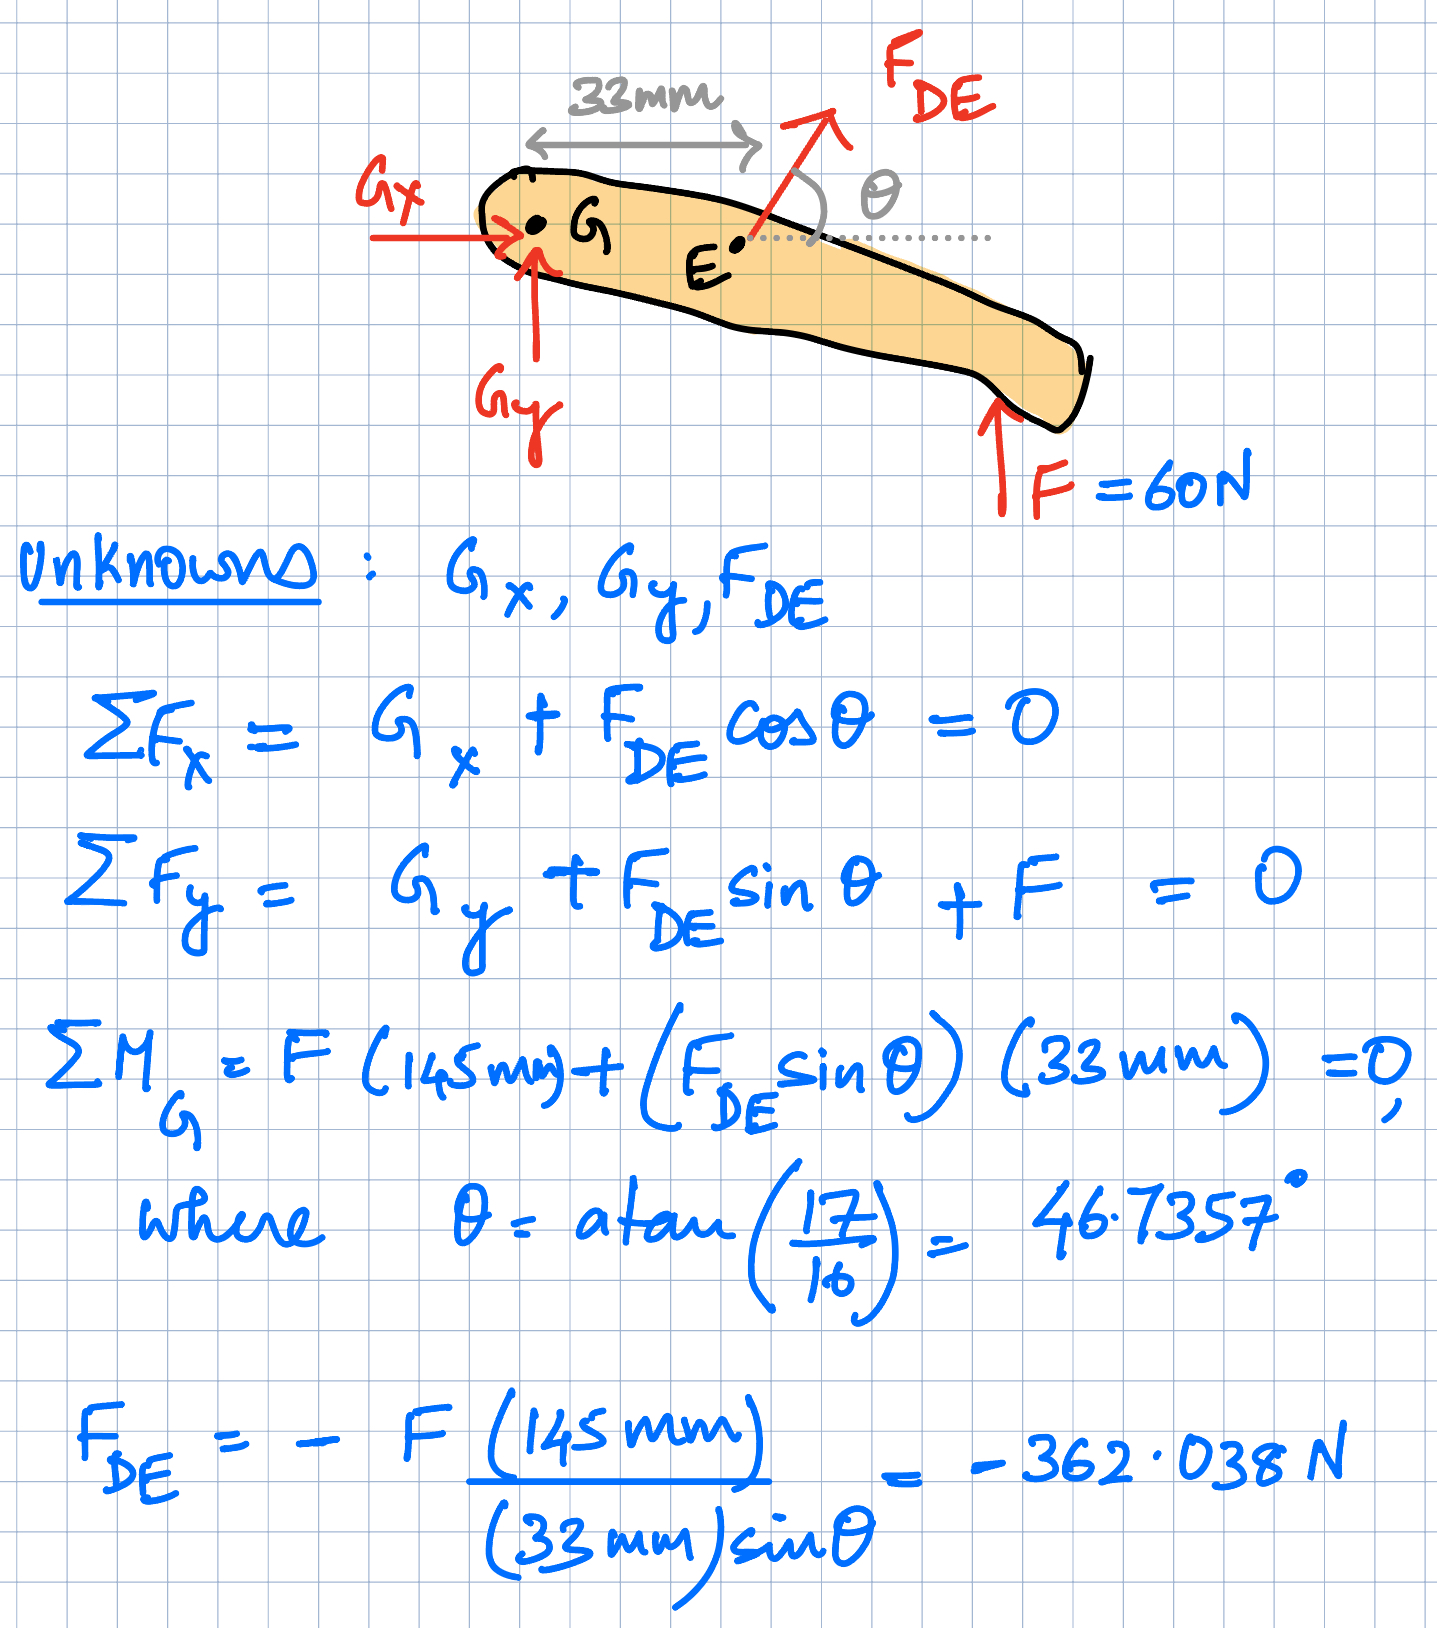 F_DE
33mm
G_x
θ
G
E
G_y
F = 60N
Unknowns : G_x, G_y, F_DE
ΣF_x = G_x + F_DE cosθ = 0
ΣF_y = G_y + F_DE sinθ + F = 0
ΣM_G = F (145mm) + (F_DE sinθ) (33mm) = 0,
where θ = atan (17/16) = 46.7357°
F_DE = - F (145mm) / (33mm) sinθ = -362.038 N